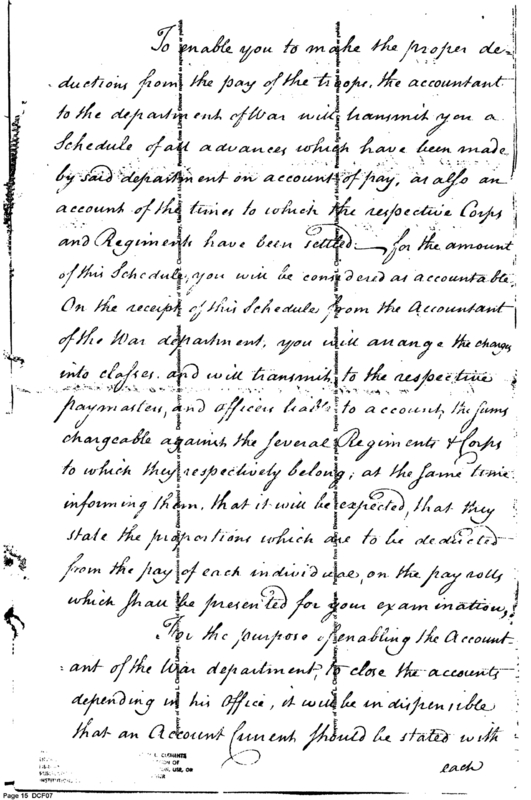 To enable you to make the proper de-
ductions from the pay of the troops, the accountant
to the department of War will transmit you a
Schedule of all advances which have been made
by said department on account of pay, as also an
account of the times to which the respective Corps
and Regiments have been settled — for the amount
of this Schedule, you will be considered as accountable.
On the receipt of this Schedule from the Accountant
of the War department, you will arrange the charges
into classes. and will transmit to the respective
paymasters, and officers liable to account, the sums
chargeable against the several Regiments & Corps
to which they respectively belong; at the same time
informing them, that it will be expected, that they
state the proportions which are to be deducted
from the pay of each individual, on the pay rolls
which shall be presented for your examination,
For the purpose of enabling the Account
ant of the War department, to close the accounts
depending in his Office, it will be indispensible
that an Account Current should be stated with
each
CLEMENTS
USE, OR
Page 15 DCF07